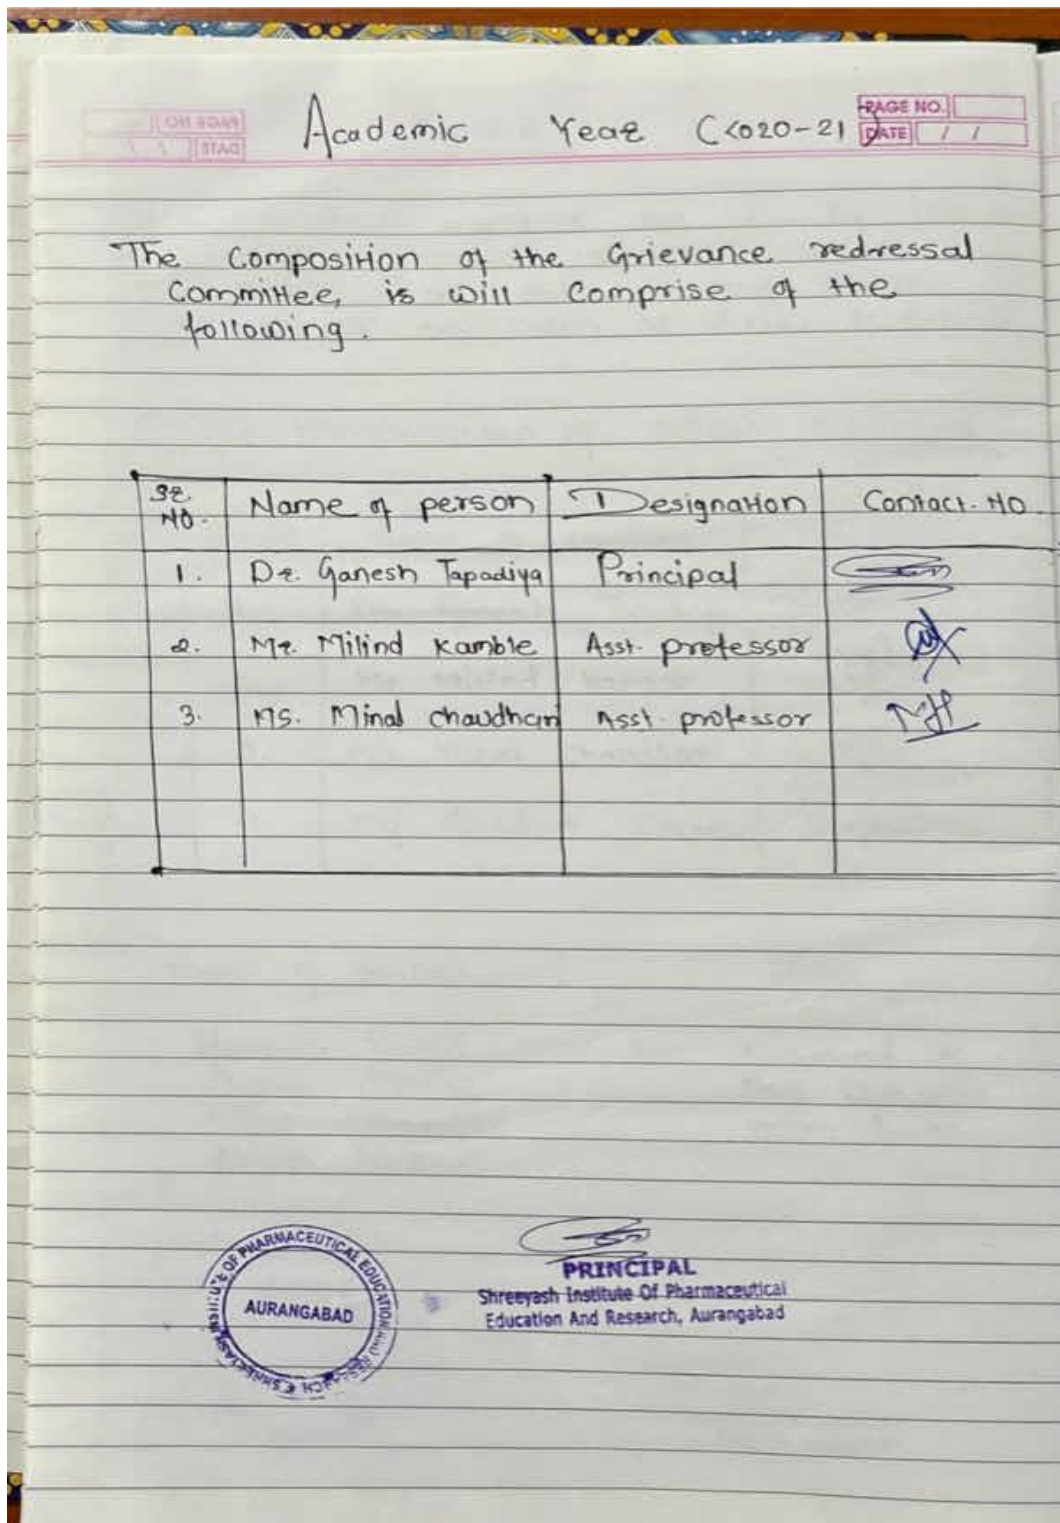 Academic Year (2020-21)
PAGE NO.
DATE / /
The Composition of the Grievance redressal
Committee, is will comprise of the
following.
Sr. No. Name of person Designation Contact. No.
1. Dr. Ganesh Tapadiya Principal
2. Mr. Milind Kamble Asst. professor
3. Ms. Minal chaudhari Asst. professor
SHREEYASH INSTITUTE OF PHARMACEUTICAL EDUCATION AND RESEARCH
AURANGABAD
PRINCIPAL
Shreeyash Institute Of Pharmaceutical
Education And Research, Aurangabad